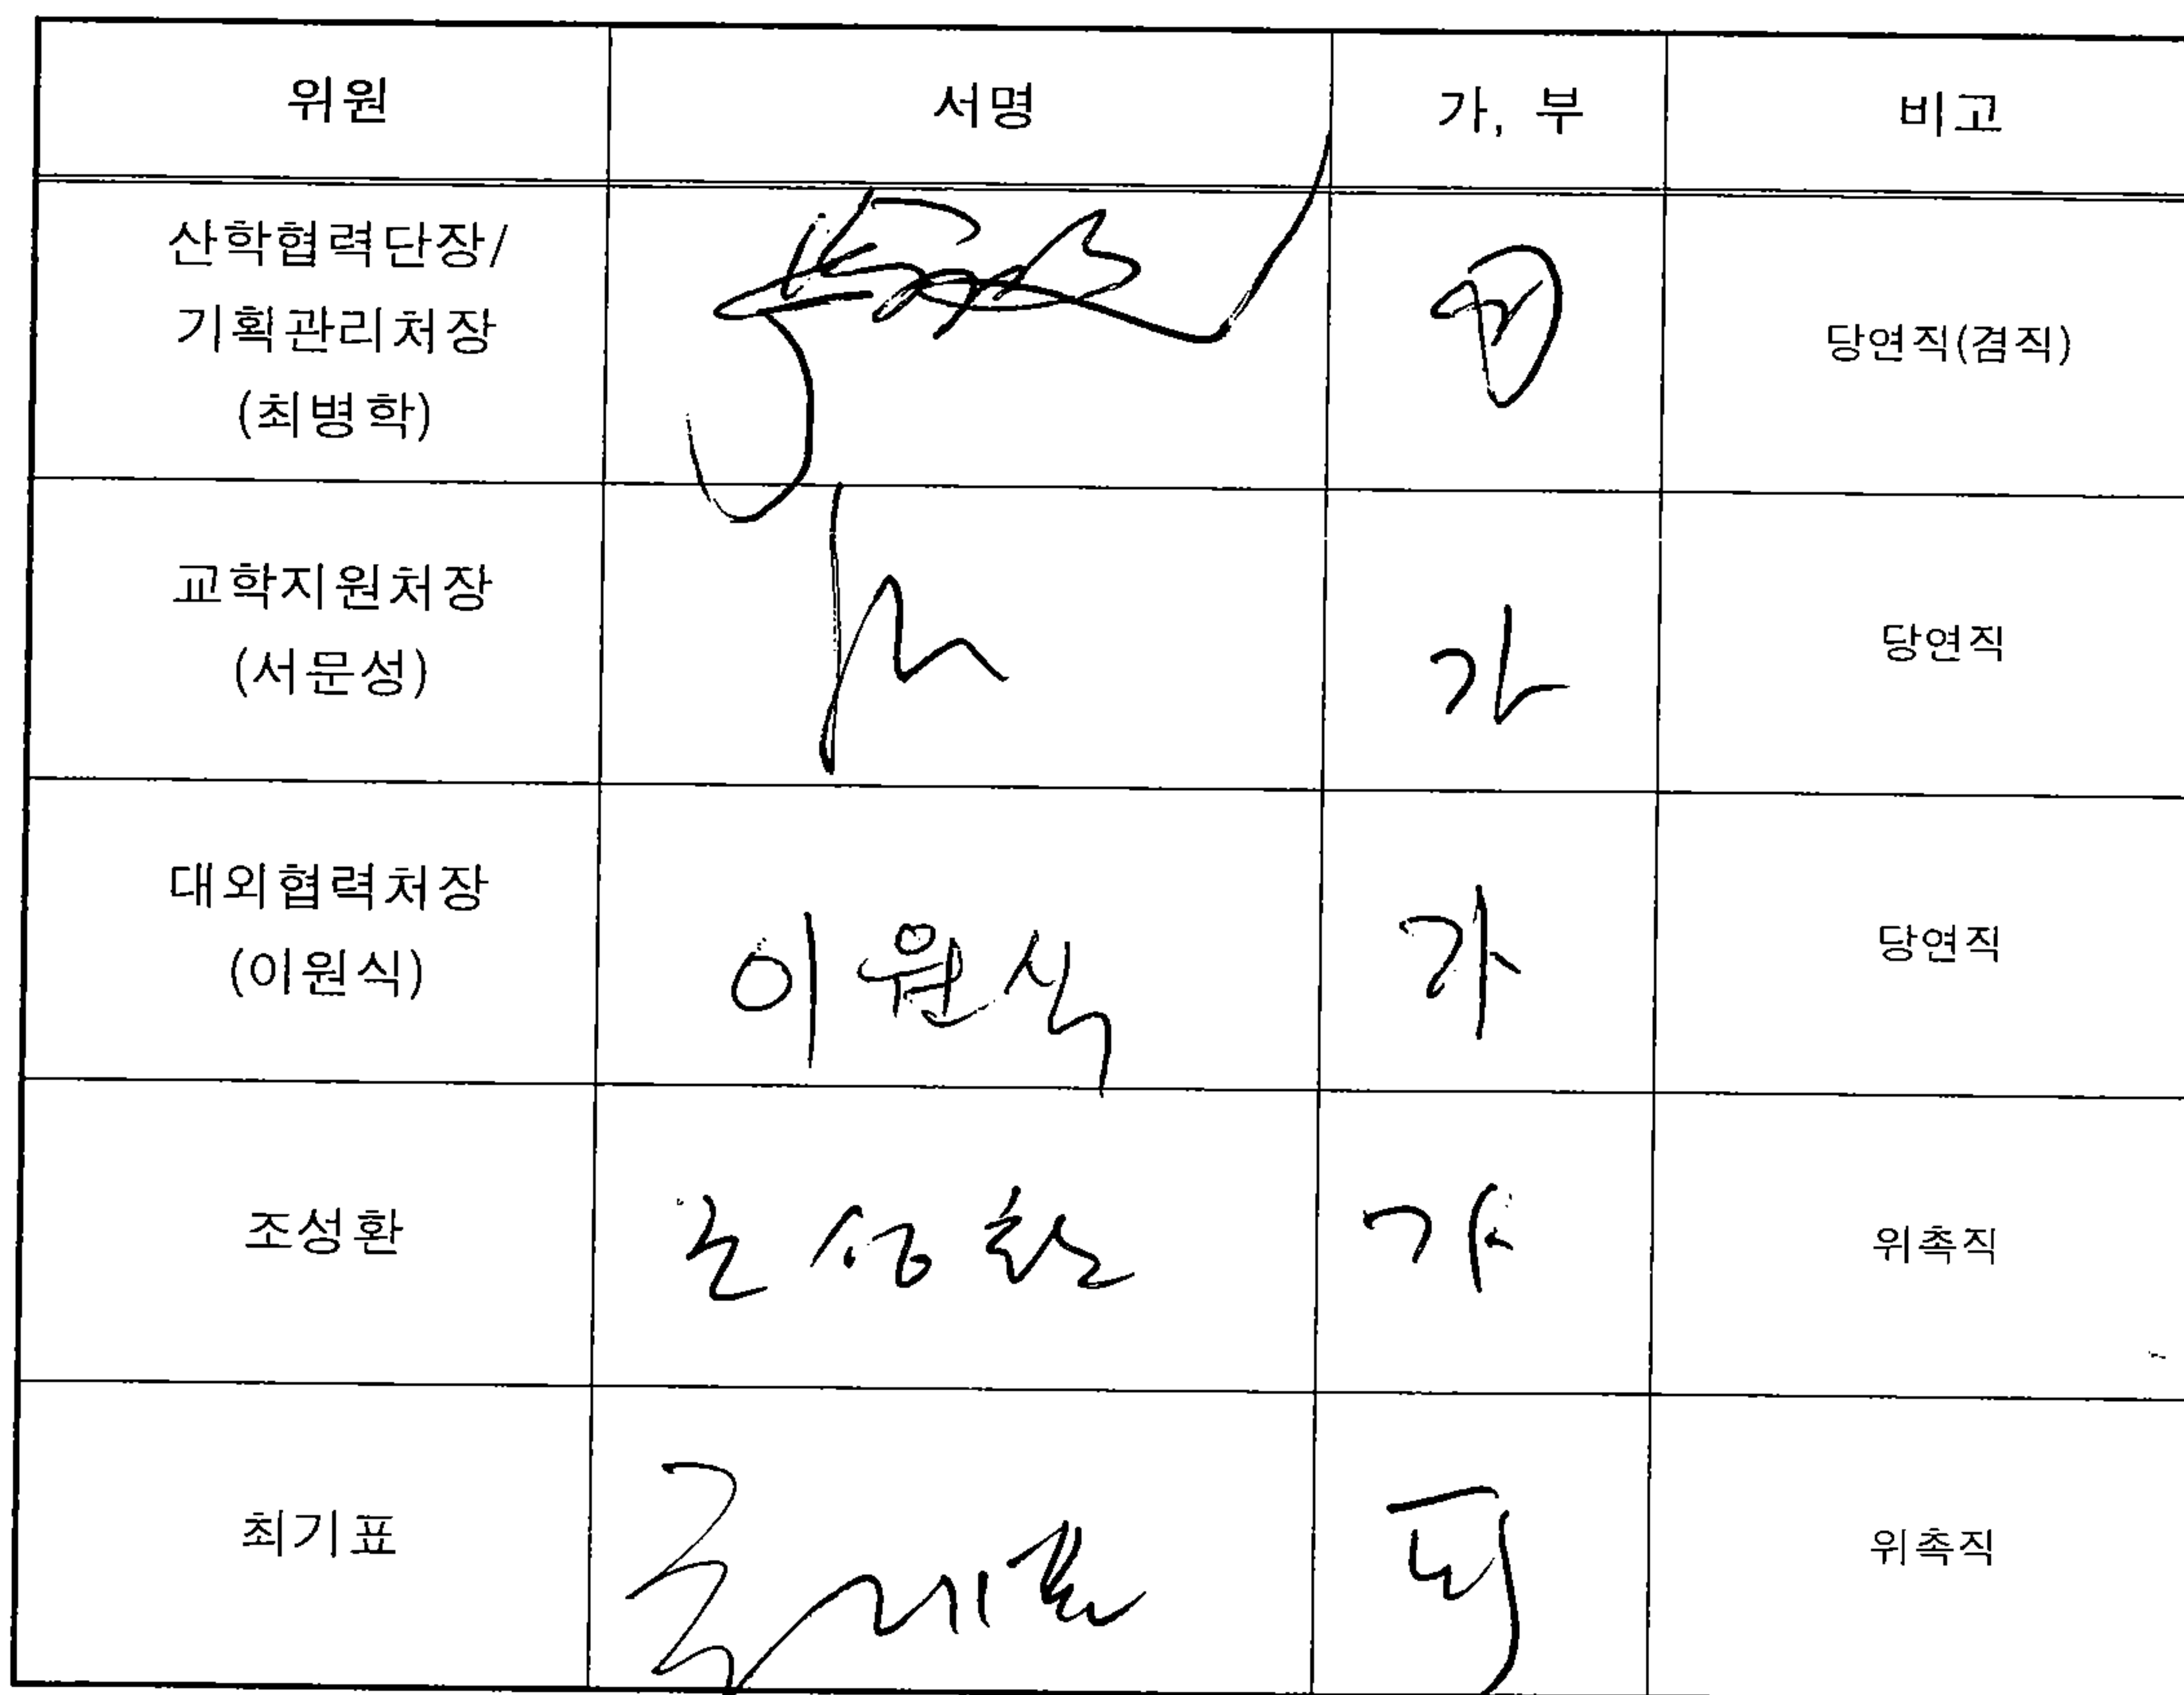 위원 서명 가, 부 비고
산학협력단장/
기획관리처장
(최병학)
당연직(겸직)
교학지원처장
(서문성)
가
당연직
대외협력처장
(이원식)
이원식
가
당연직
조성환
조성환
가
위촉직
최기표
可
위촉직